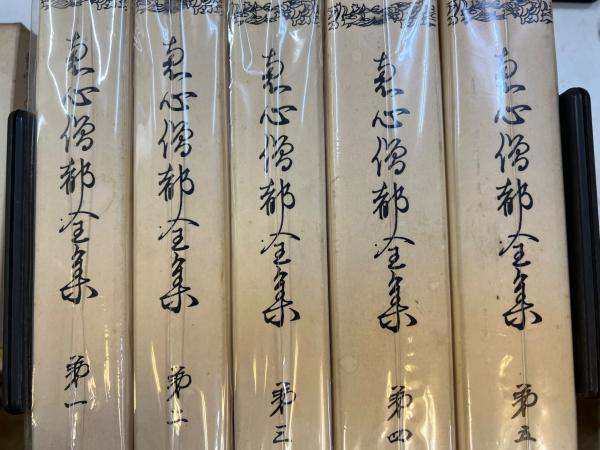 恵心僧都全集 第一
恵心僧都全集 第二
恵心僧都全集 第三
恵心僧都全集 第四
恵心僧都全集 第五